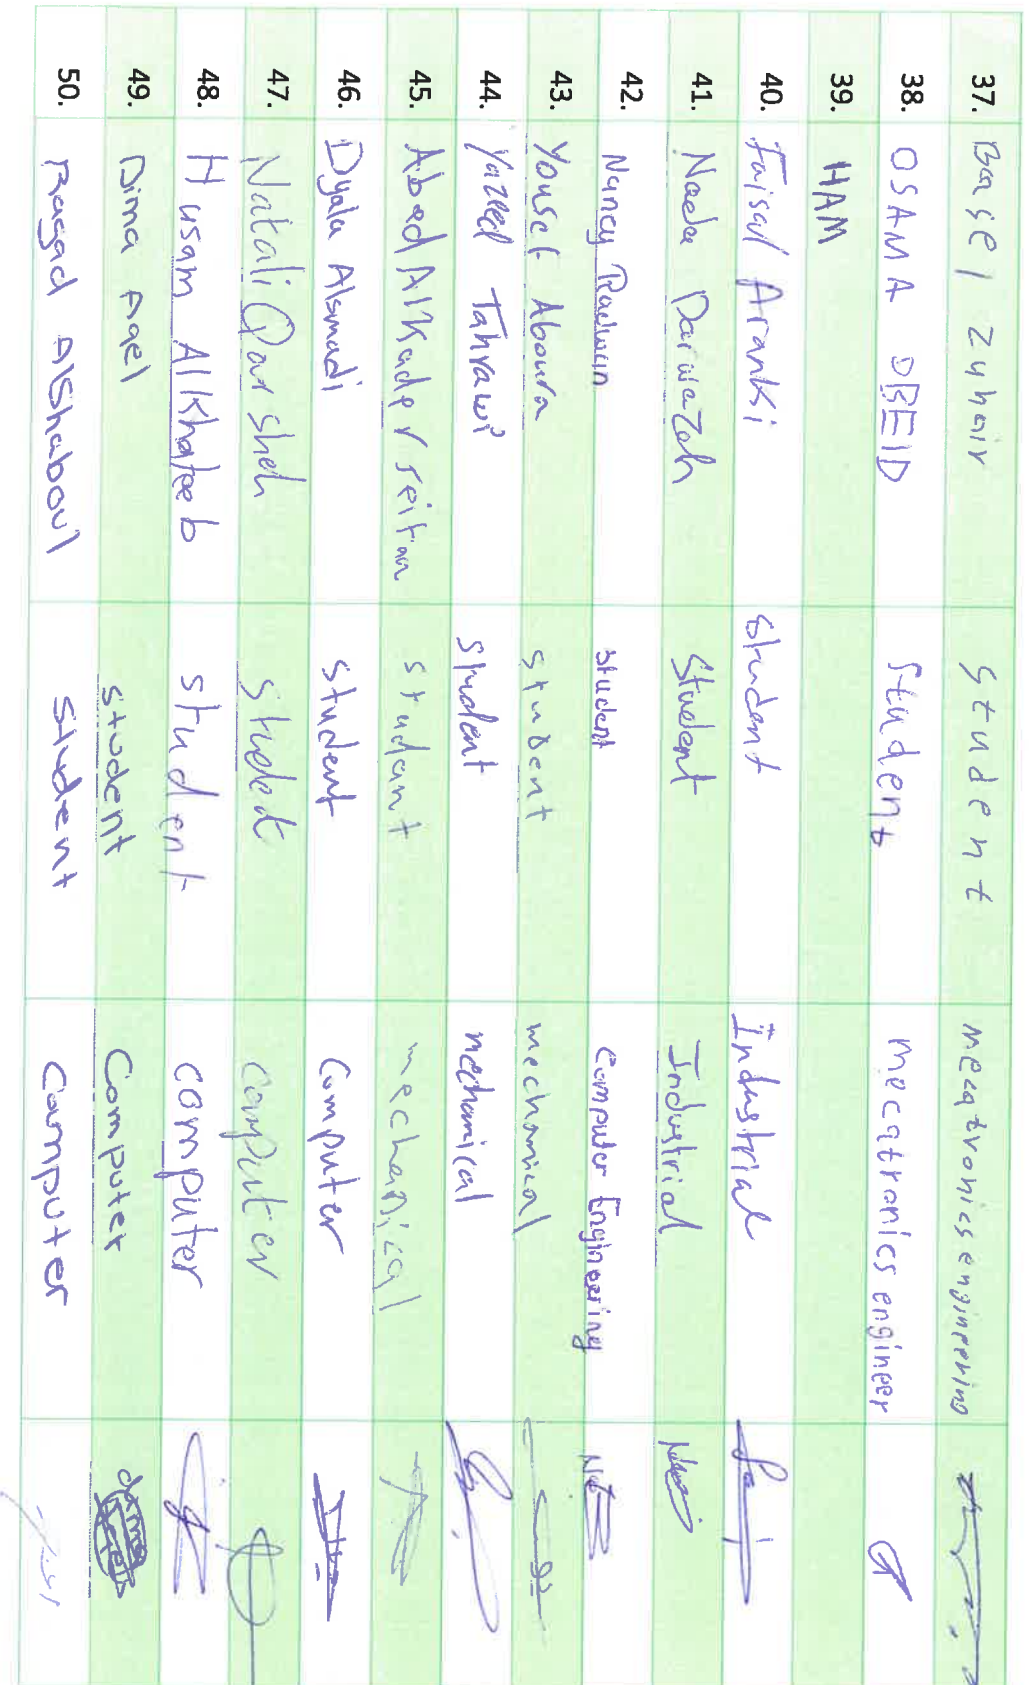 37. Basel Zuhair student mecatronics engineering
38. OSAMA OBEID student mecatronics engineer
39. HAM
40. Faisal Aranki student Industrial
41. Nada Darwazeh Student Industrial
42. Nancy Radwan student Computer Engineering
43. Yousef Aboura student mechanical
44. Yazeed Tahrawi student mechanical
45. Abed AlKader seitan student mechanical
46. Dyala Alsmadi student Computer
47. Natali Qarsheh student computer
48. Husam AlKhateeb student computer
49. Dima Aqel student Computer
50. Raggad AlShaboul student Computer